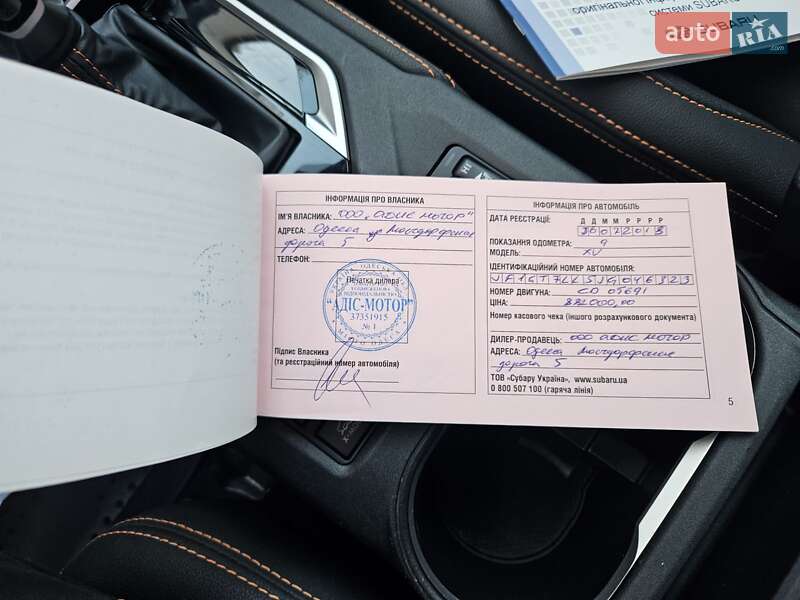 оригінальної
системи SUBARU
SUBARU
auto RIA
.com
ІНФОРМАЦІЯ ПРО ВЛАСНИКА
ІМ'Я ВЛАСНИКА: ООО „АДИС МОТОР"
АДРЕСА: Одесса
дорога 5
ТЕЛЕФОН:
Печатка дилера
"АДІС-МОТОР"
37351915
№ 1
Підпис Власника
(та реєстраційний номер автомобіля)
ІНФОРМАЦІЯ ПРО АВТОМОБІЛЬ
Д Д М М Р Р Р Р
ДАТА РЕЄСТРАЦІЇ: 30072018
ПОКАЗАННЯ ОДОМЕТРА: 9
МОДЕЛЬ: XV
ІДЕНТИФІКАЦІЙНИЙ НОМЕР АВТОМОБІЛЯ:
JF1GT7LK5JG046323
НОМЕР ДВИГУНА:
ЦІНА:
Номер касового чека (іншого розрахункового документа)
ДИЛЕР-ПРОДАВЕЦЬ: ООО АДИС МОТОР
АДРЕСА: Одесса
дорога 5
ТОВ «Субару Україна», www.subaru.ua
0 800 507 100 (гаряча лінія)
5